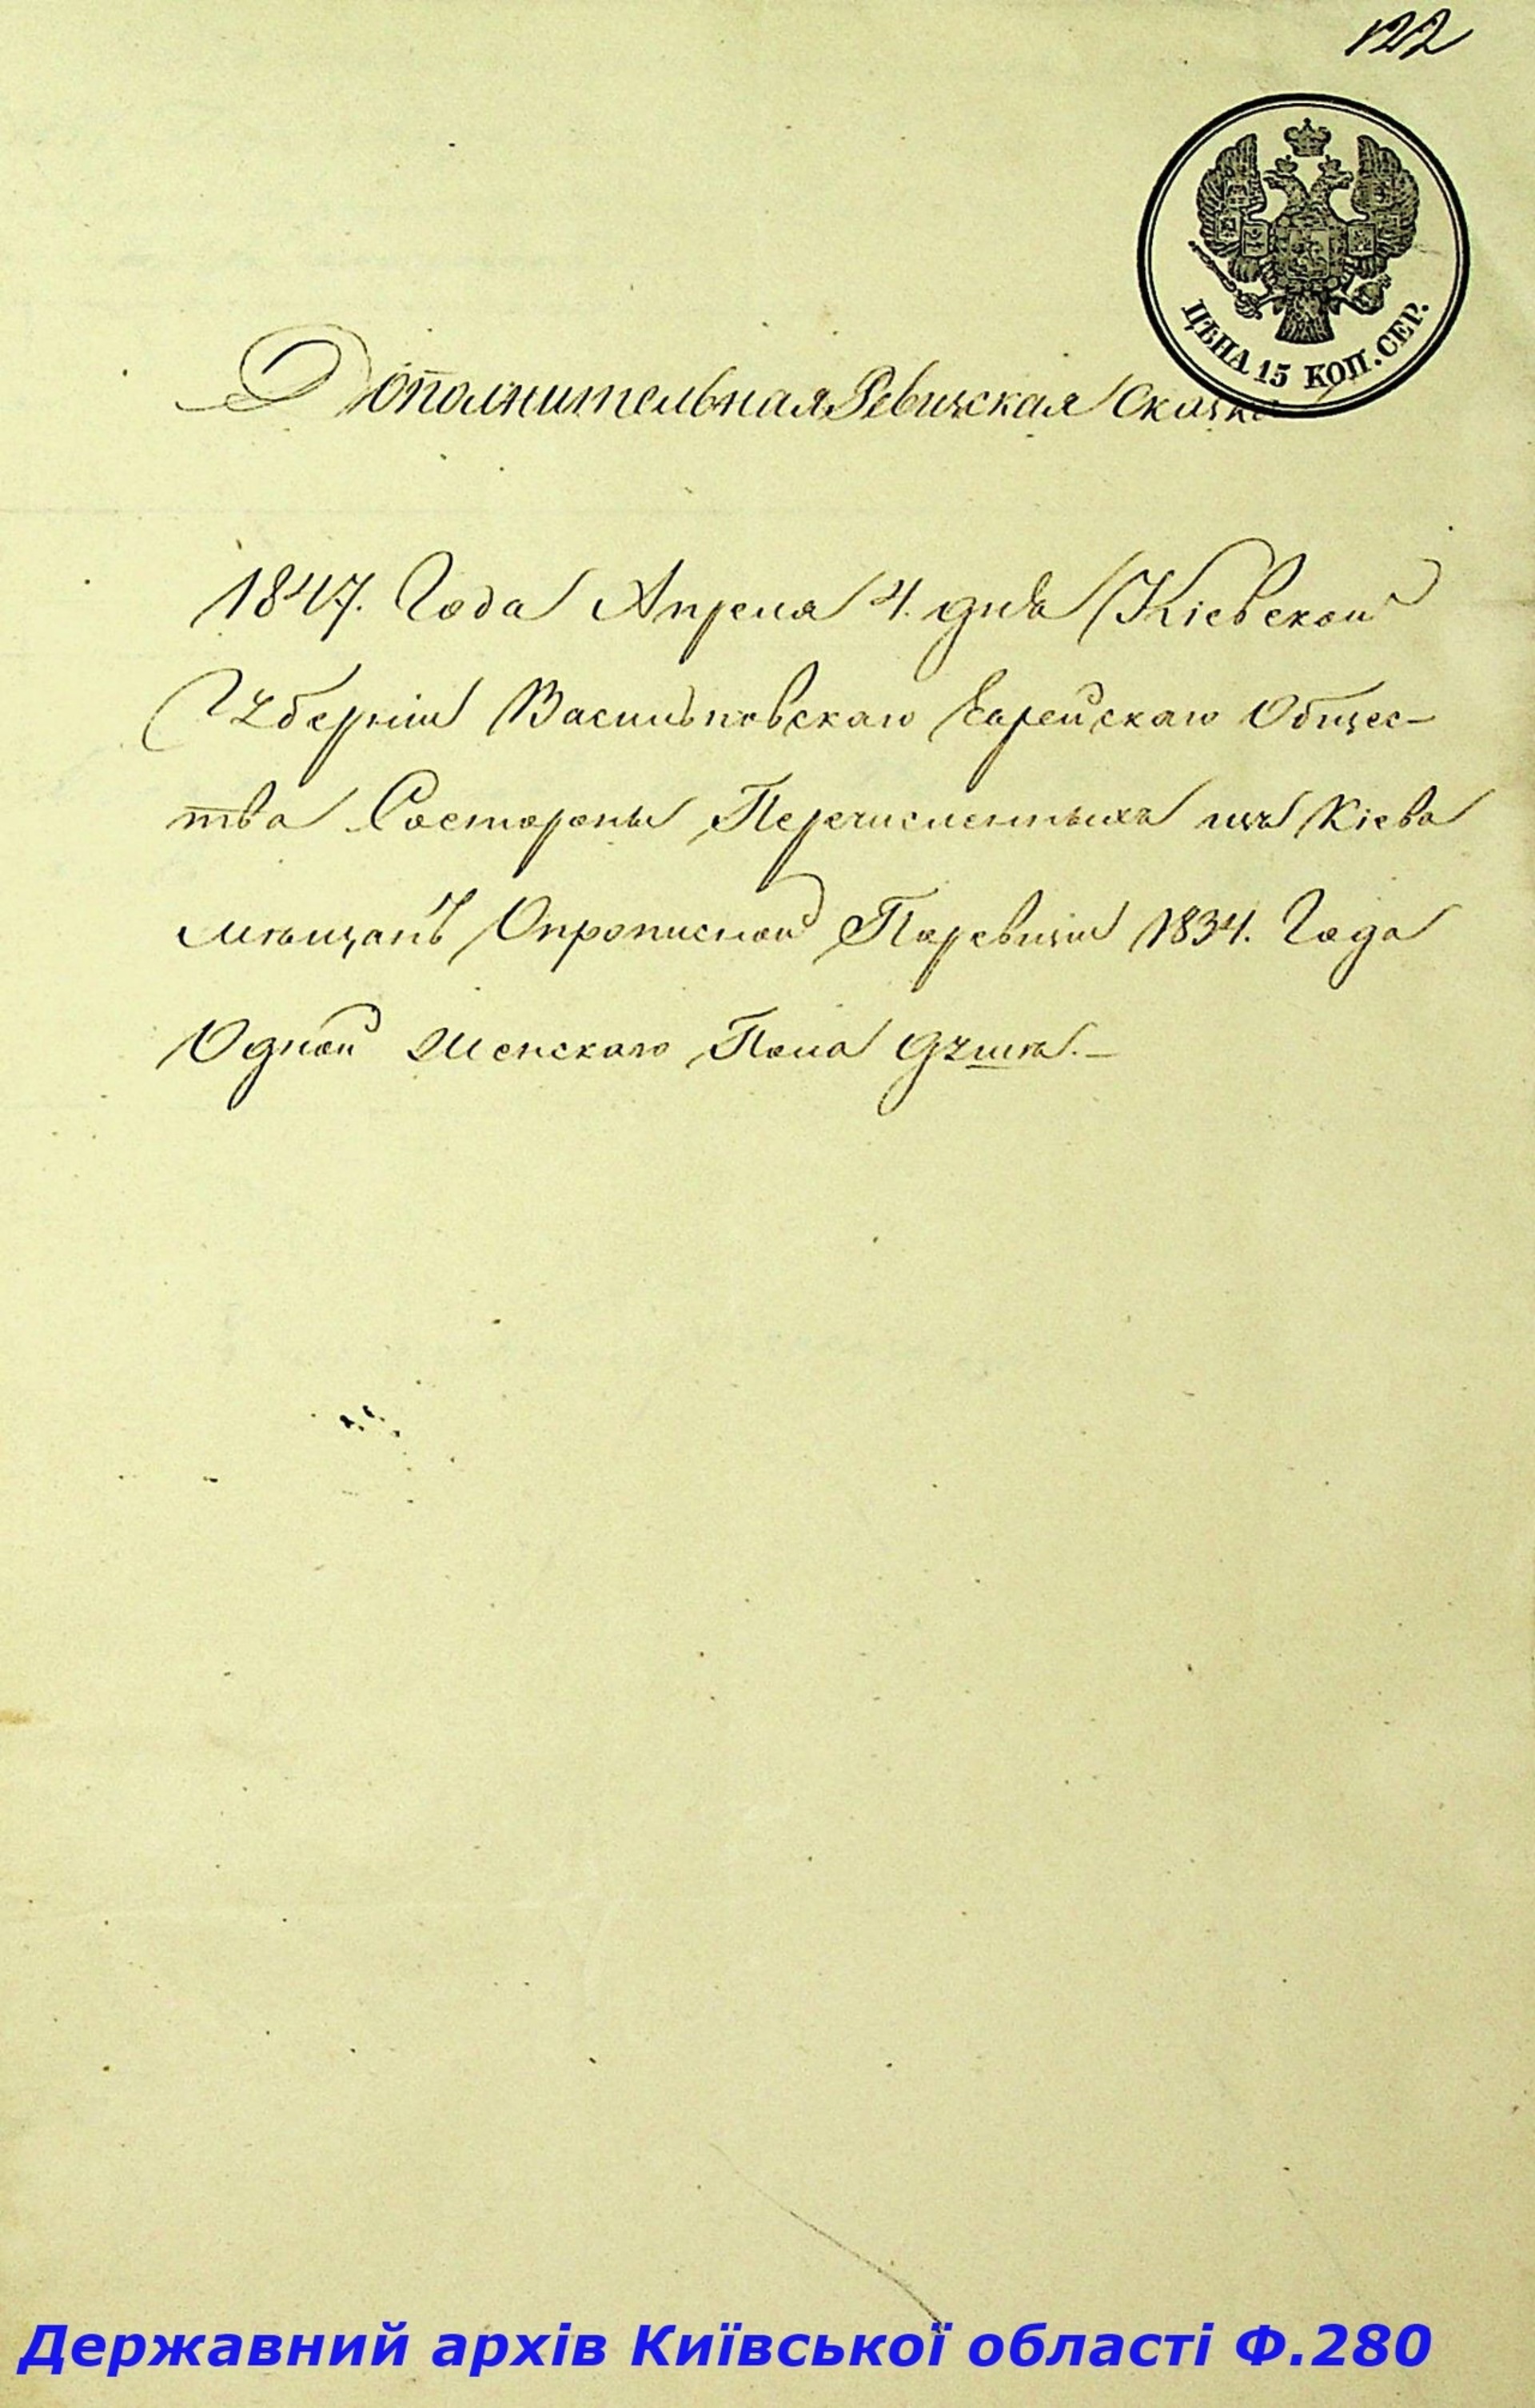 122
ЦѢНА 15 КОП. СЕР.
Дополнительная Ревизская Сказка
1847. Года Апреля 4. дня Кіевской
Губерніи Васильковскаго Еврейскаго Общес-
тва Состороны Перечисленныхъ изъ Кіева
мѣщанъ Опрописной Поревизіи 1834. Года
Одной Женскаго Пола душѣ.-
Державний архів Київської області Ф.280